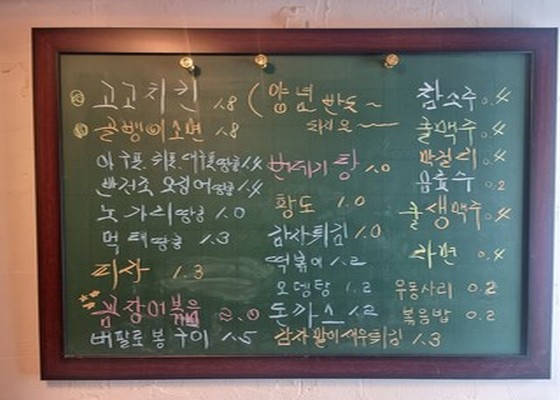 고고치킨 1.8 (양념 반도~
골뱅이소면 1.8 되어요~
아구포.쥐포.대구포땅콩 1.4
반건조 오징어땅콩 1.4
노가리땅콩 1.0
먹태땅콩 1.3
피자 1.3
꼼장어볶음 2.0
버팔로봉구이 1.5
번데기탕 1.0
황도 1.0
감자튀김 1.0
떡볶이 1.2
오뎅탕 1.2
돈까스 1.2
감자말이새우튀김 1.3
참소주 0.4
콜맥주 0.4
막걸리 0.4
음료수 0.2
생맥주 0.4
라면 0.4
우동사리 0.2
볶음밥 0.2